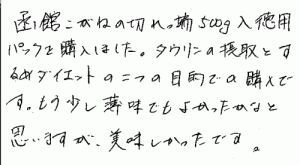 函館こがねの切れっ端500g入徳用
パックを購入しました。タウリンの摂取とす
るめダイエットの二つの目的での購入で
す。もう少し薄味でもよかったかなと
思いますが、美味しかったです。